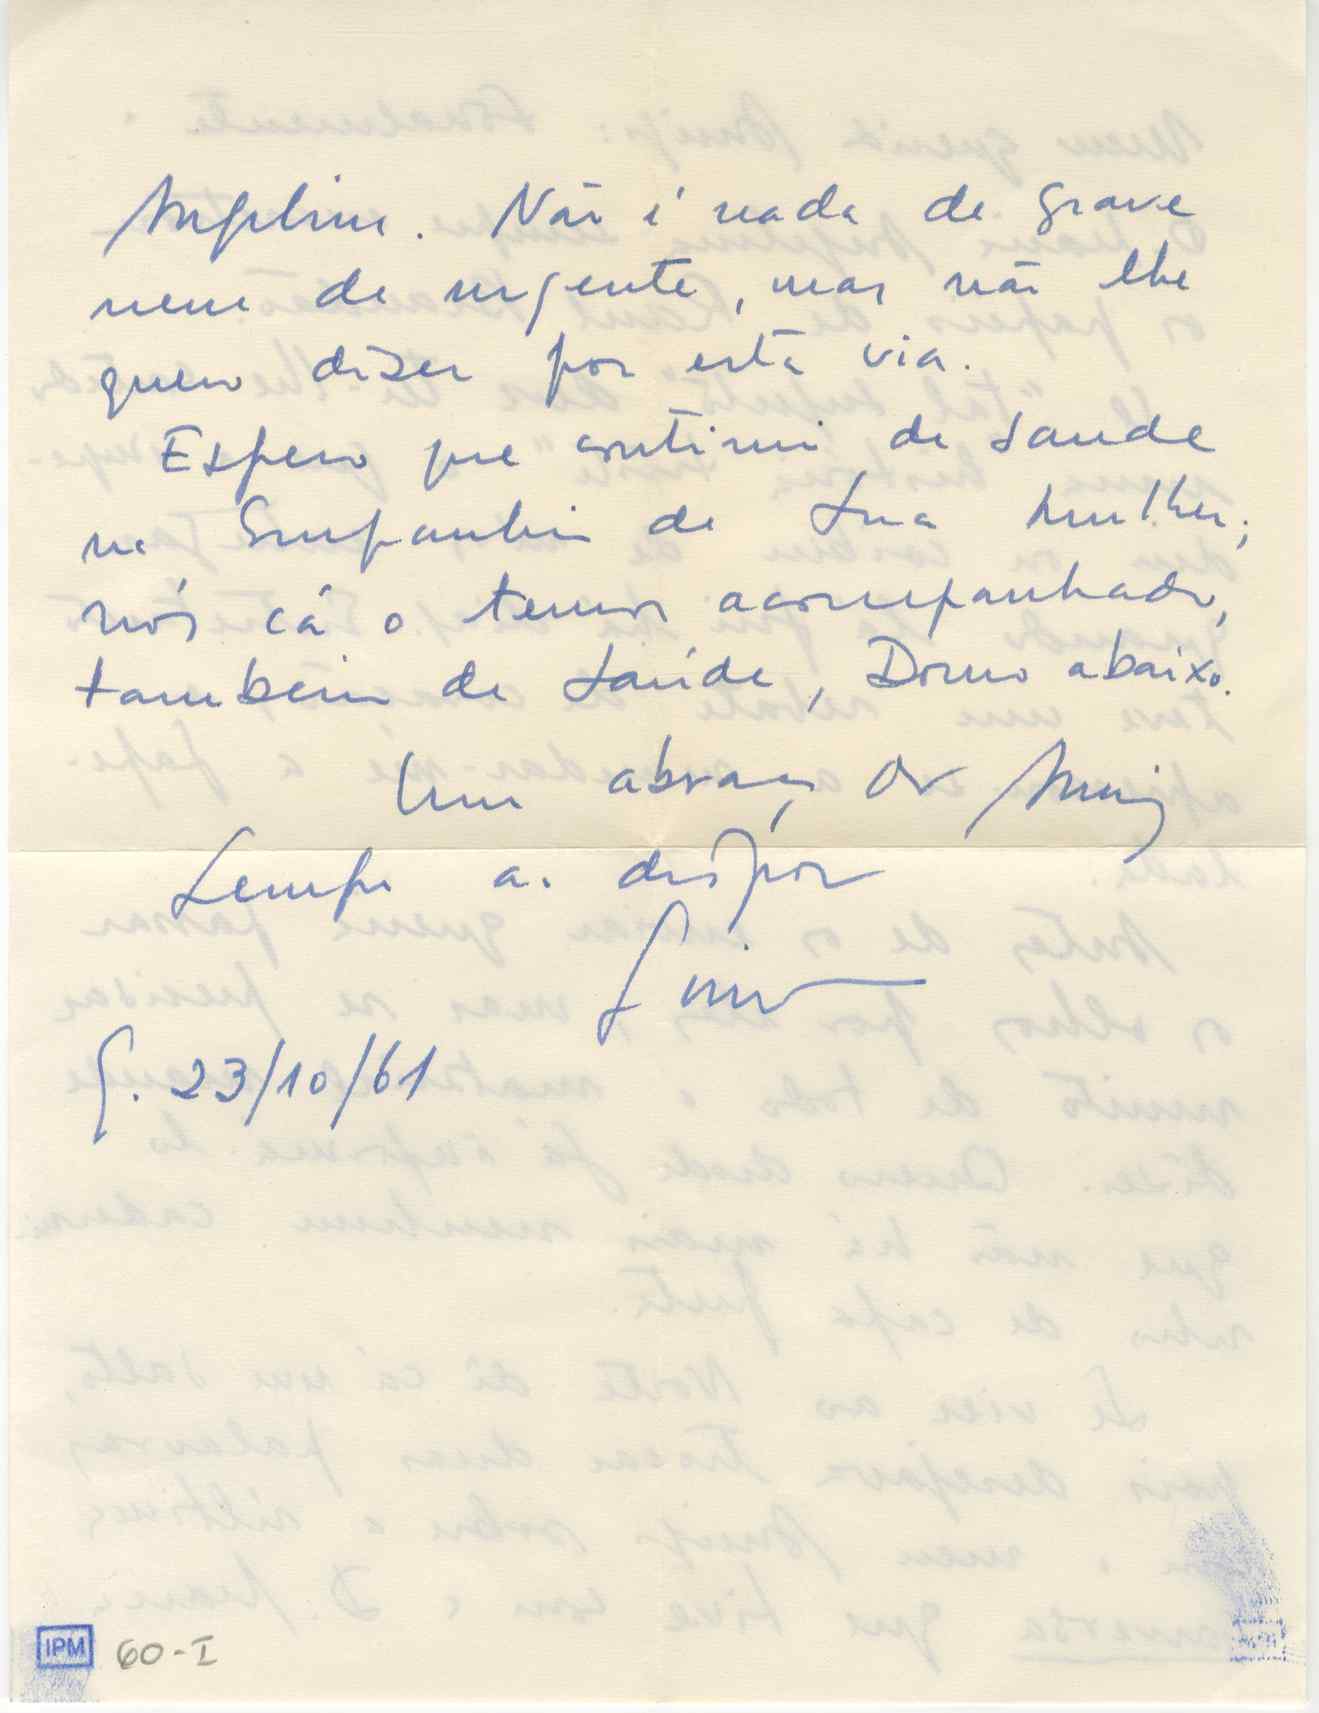 Angelina. Não é nada de grave
nem de urgente, mas não lhe
quero dizer por esta via.
Espero que continui de saude
na Companhia de Sua Mulher;
nós cá o temos acompanhado,
também de saúde, Douro abaixo.
Um abraço do Amigo
Sempre a dispor
G. 23/10/61
IPM 60-I